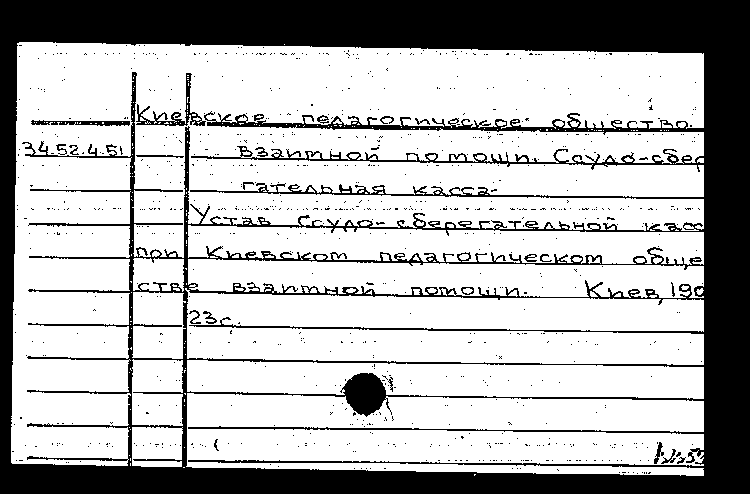 Киевское педагогическое общество
34.52.4.51 взаимной помощи. Ссудо-сбер
гательная касса.
Устав Ссудо-сберегательной касс
при Киевском педагогическом обще
стве взаимной помощи. Киев, 190
23с.